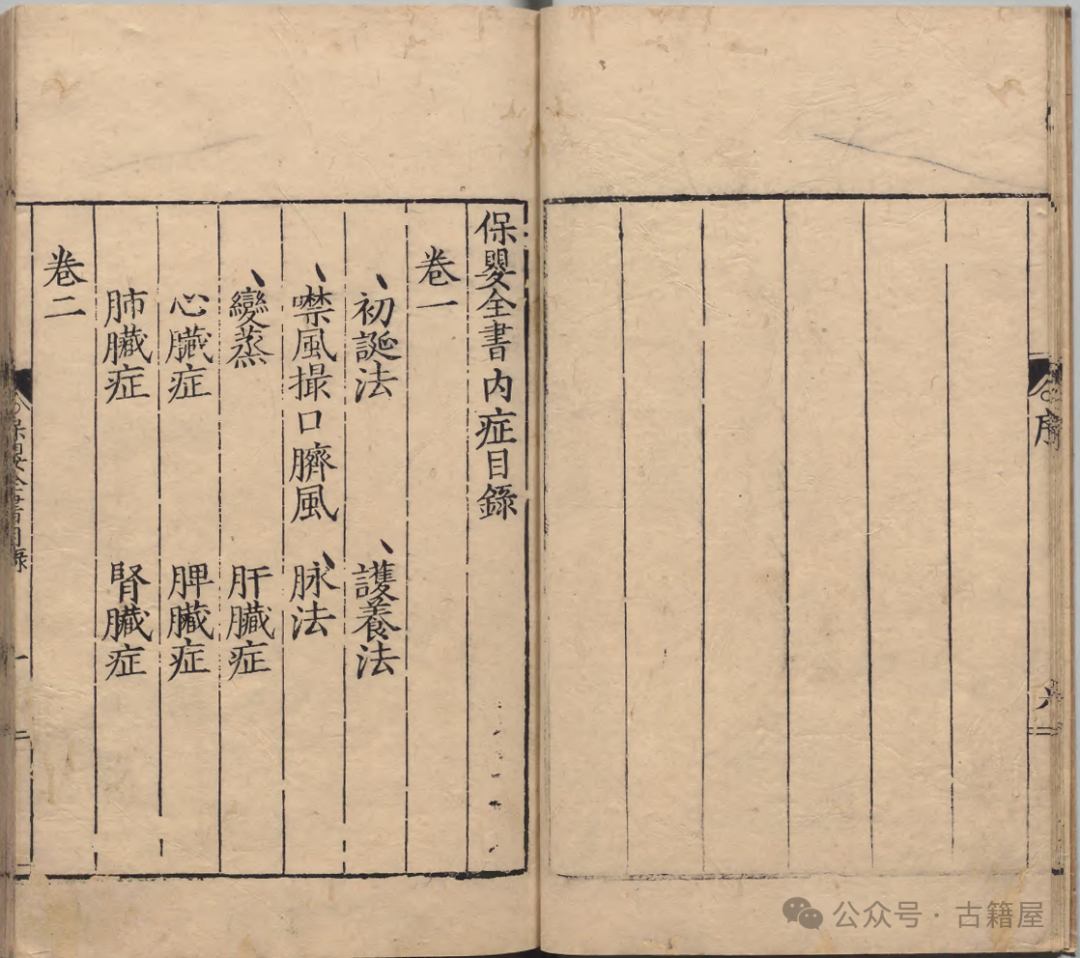 序
六
保嬰全書內症目錄
卷一
初誕法
護養法
噤風撮口臍風
脉法
變蒸
肝臟症
心臟症
脾臟症
肺臟症
腎臟症
卷二
保嬰全書目錄
一
公众号·古籍屋